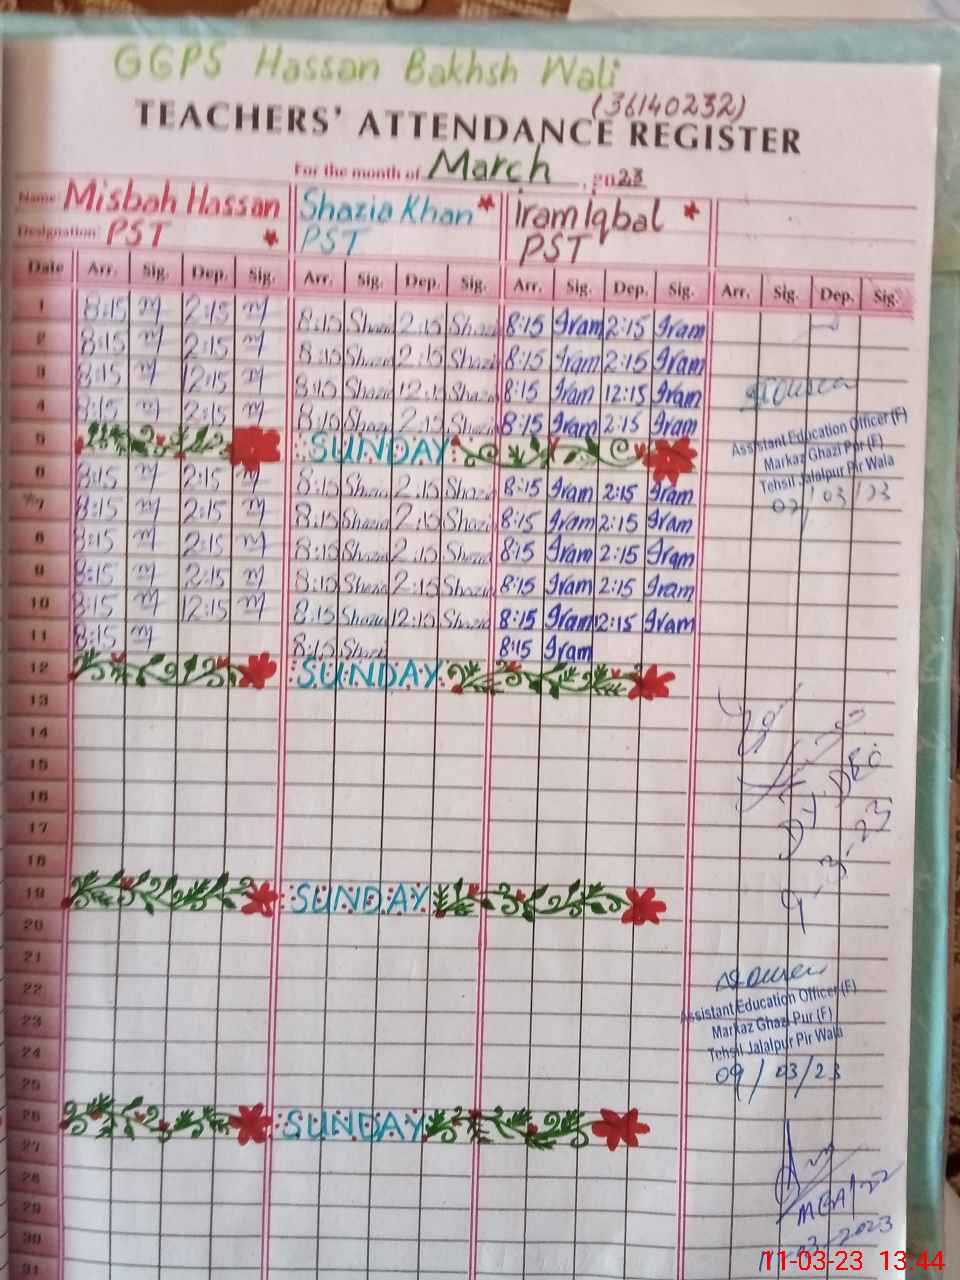 GGPS Hassan Bakhsh Wali
(36140232)
TEACHERS' ATTENDANCE REGISTER
For the month of March, 2023
Name: Misbah Hassan Shazia Khan Iram Iqbal
Designation: PST PST PST
Date Arr. Sig. Dep. Sig. Arr. Sig. Dep. Sig. Arr. Sig. Dep. Sig. Arr. Sig. Dep. Sig.
1 8:15 m 2:15 m 8:15 Shazia 2:15 Shazia 8:15 Iram 2:15 Iram
2 8:15 m 2:15 m 8:15 Shazia 2:15 Shazia 8:15 Iram 2:15 Iram
3 8:15 m 12:15 m 8:15 Shazia 12:15 Shazia 8:15 Iram 12:15 Iram
4 8:15 m 2:15 m 8:15 Shazia 2:15 Shazia 8:15 Iram 2:15 Iram
5 SUNDAY
6 8:15 m 2:15 m 8:15 Shazia 2:15 Shazia 8:15 Iram 2:15 Iram
7 8:15 m 2:15 m 8:15 Shazia 2:15 Shazia 8:15 Iram 2:15 Iram
8 8:15 m 2:15 m 8:15 Shazia 2:15 Shazia 8:15 Iram 2:15 Iram
9 8:15 m 2:15 m 8:15 Shazia 2:15 Shazia 8:15 Iram 2:15 Iram
10 8:15 m 12:15 m 8:15 Shazia 12:15 Shazia 8:15 Iram 12:15 Iram
11 8:15 m 8:15 Shazia 8:15 Iram
12 SUNDAY
13
14
15
16
17
18
19 SUNDAY
20
21
22
23
24
25
26 SUNDAY
27
28
29
30
31
Assistant Education Officer (F)
Markaz Ghazi Pur (F)
Tehsil Jalalpur Pir Wala
07/03/23
Dy DEO
9-3-23
Assistant Education Officer (F)
Markaz Ghazi Pur (F)
Tehsil Jalalpur Pir Wala
09/03/23
03-2023
11-03-23 13:44